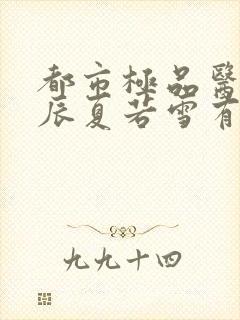 都市極品醫
辰夏若雪有
九九十四